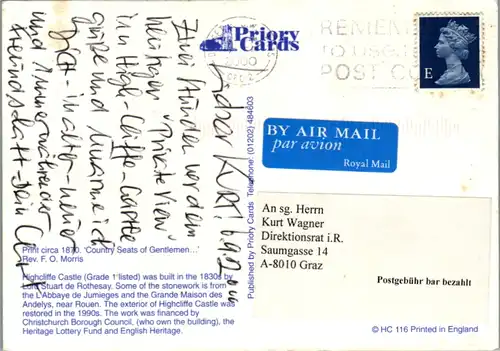 Priory
Cards
REMEMBER
TO USE THE
POST CODE
E
Lieber Kurt! 6.9.2000
Zwei Stunden vor dem
heutigen "Private View"
im High-Cliffe-Castle
grüße und umarme ich
Dich - in alter - neuer
und immerwährender
Freundschaft - Dein
BY AIR MAIL
par avion
Royal Mail
An sg. Herrn
Kurt Wagner
Direktionsrat i.R.
Saumgasse 14
A-8010 Graz
Postgebühr bar bezahlt
Published by Priory Cards Telephone: (01202) 484603
Print circa 1870. 'Country Seats of Gentlemen...'
Rev. F. O. Morris
Highcliffe Castle (Grade 1 listed) was built in the 1830s by
Lord Stuart de Rothesay. Some of the stonework is from
the L'Abbaye de Jumieges and the Grande Maison des
Andelys, near Rouen. The exterior of Highcliffe Castle was
restored in the 1990s. The work was financed by
Christchurch Borough Council, (who own the building), the
Heritage Lottery Fund and English Heritage.
© HC 116 Printed in England